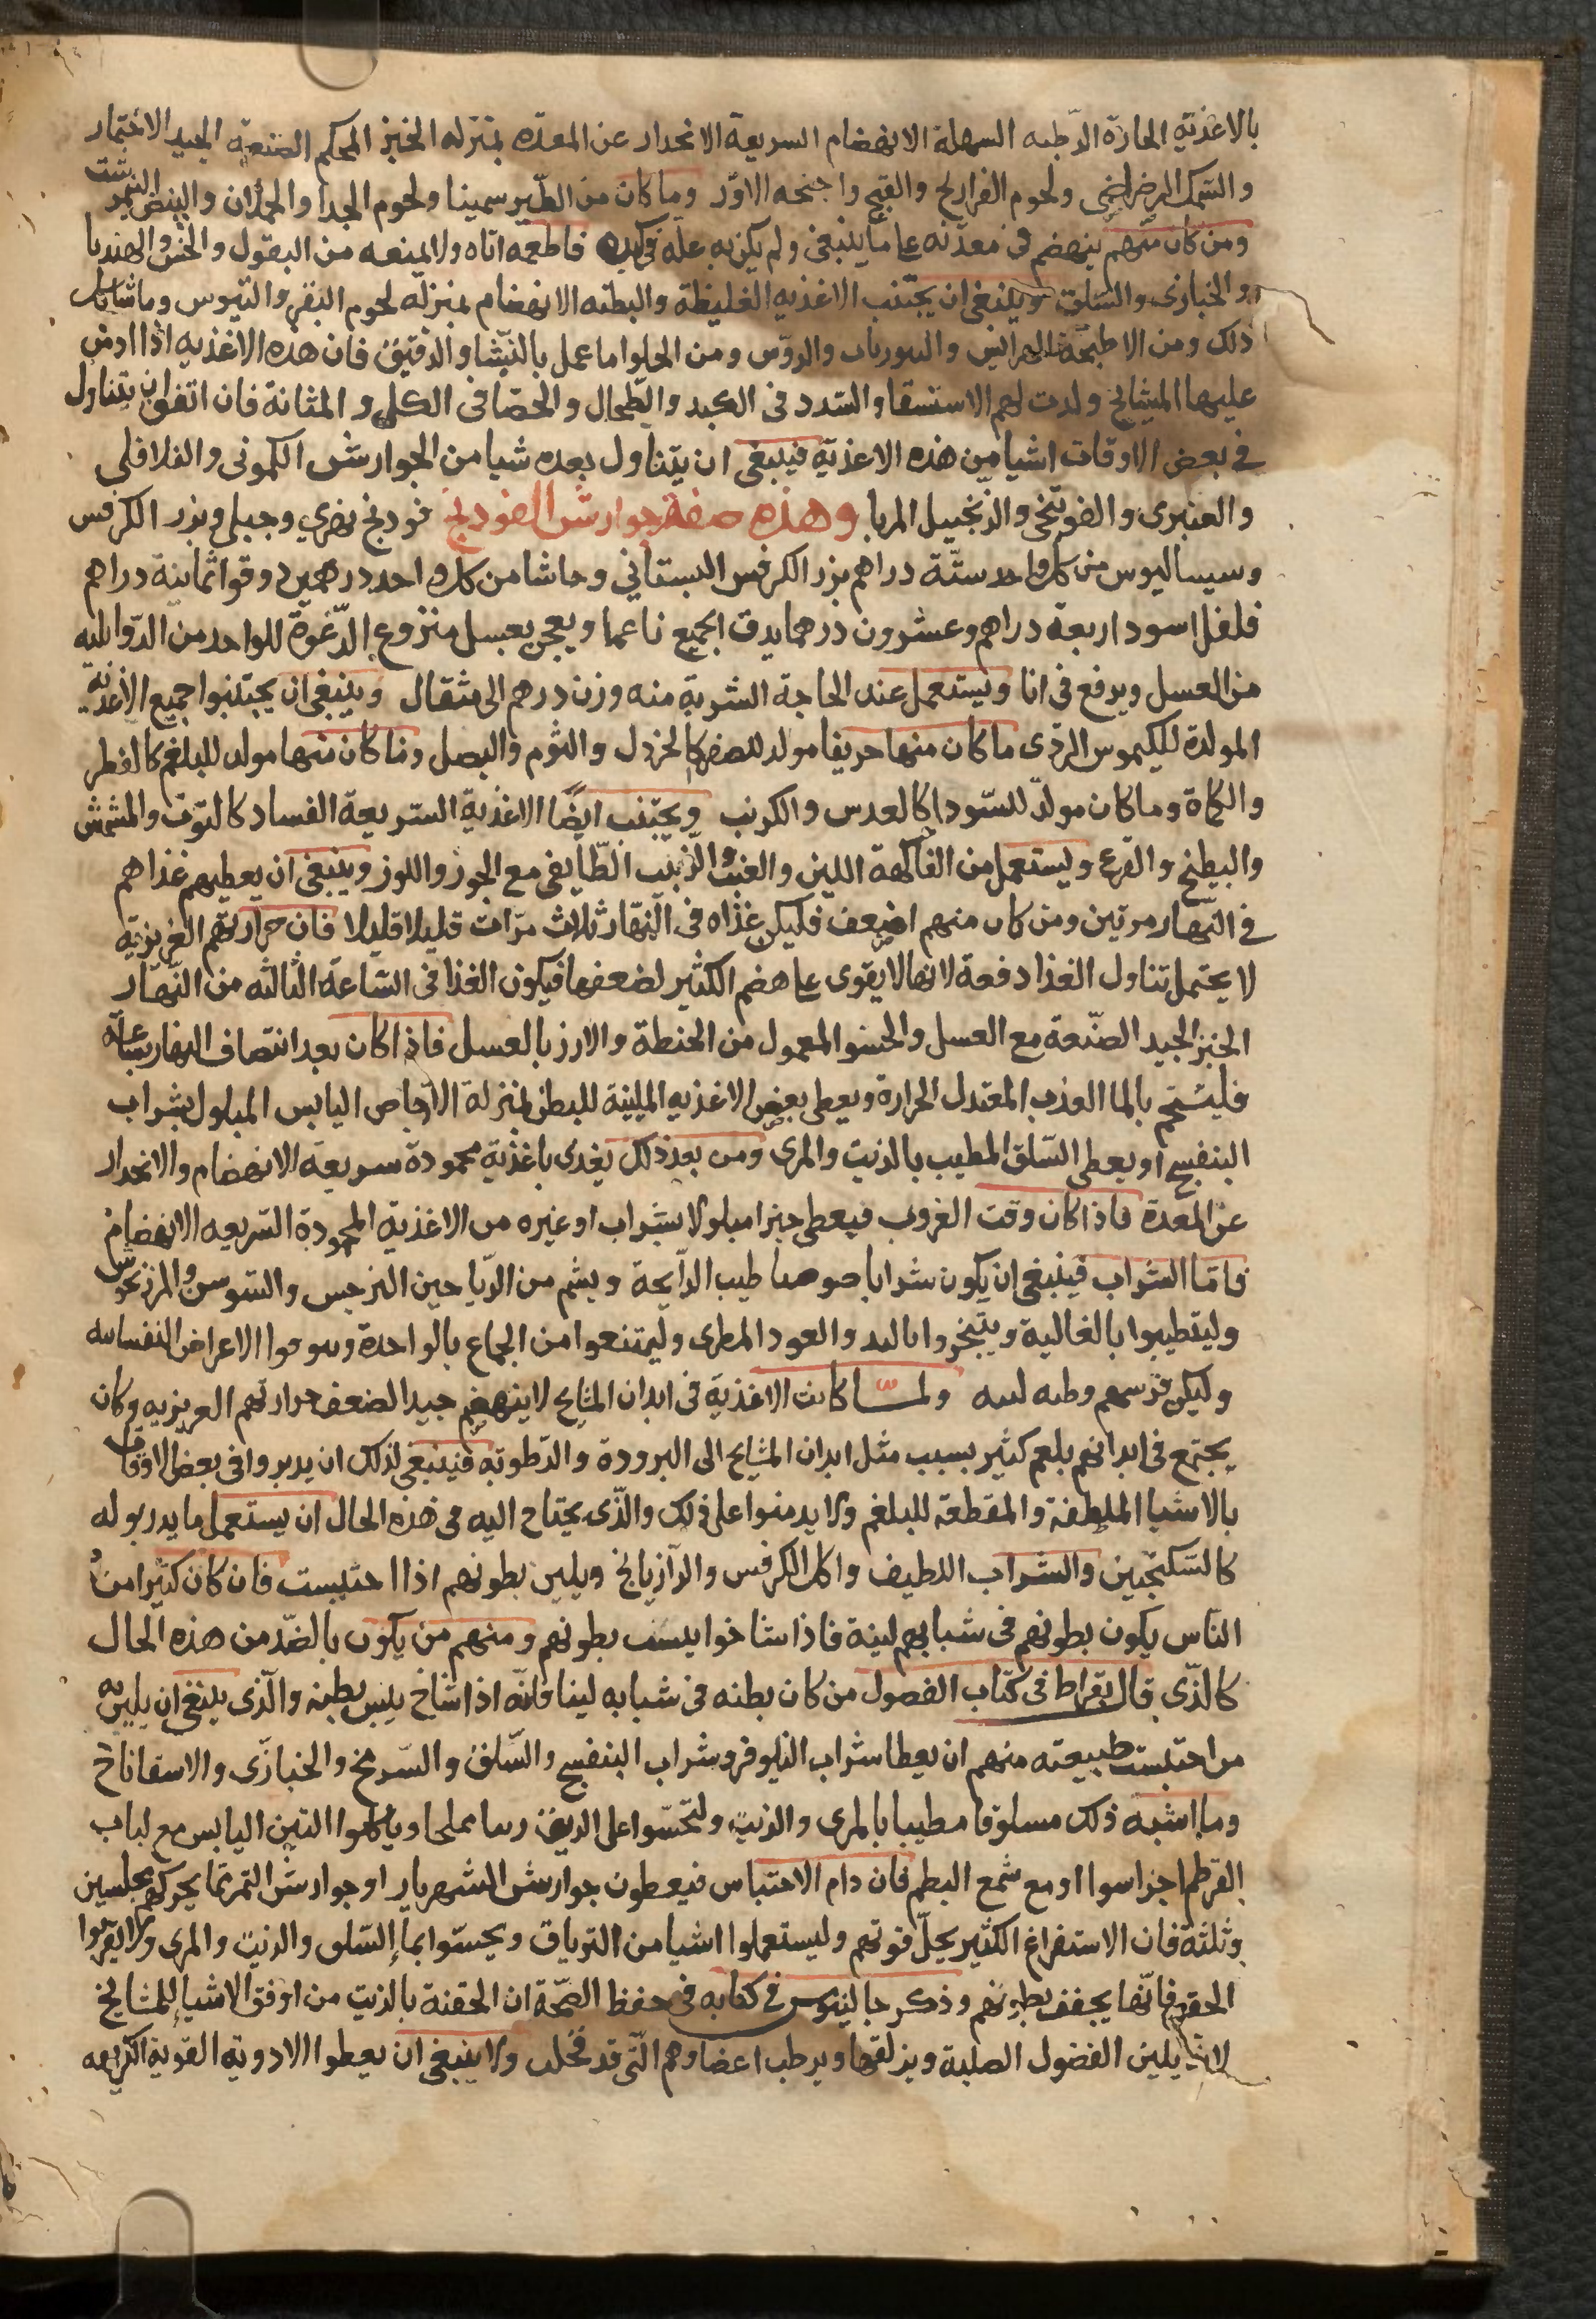 بالاغذية الحارة الرطبه السهلة الانهضام السريعة الانحدار عن المعدة بمنزله الخبز المحكم الصنعة الجيد الاختمار
والسمك الرضراضى ولحوم الفراريج والقبج واجنحه الاوز وما كان من الطير سمينا ولحوم الجدا والحملان والبيض النيمرشت
ومن كان منهم ينهضم فى معدته علىما ينبغى ولم يكن به علة فى كبده فاطعمه اياه ولا يمنعه من البقول والخس والهندبا
والخبازى والسلق وينبغى ان يجتنب الاغذيه الغليظة والبطئه الانهضام بمنزله لحوم البقر والتيوس وما شاكل
ذلك ومن الاطبخة الهرايس والروس ومن الحلوا ما عمل بالنشا والدقيق فان هذه الاغذيه اذا ادمن
عليها المشايخ ولدت لهم الاستسقا والسدد فى الكبد والطحال والحصا فى الكلى والمثانة فان اتفق ان يتناول
فى بعض الاوقات اشيا من هذه الاغذية فينبغى ان يتناول بعده شيا من الجوارشن الكمونى والفلافلى
والعنبرى والفوتنجى والزنجبيل المربا وهذه صفة جوارشن الفودنج فودنج نهري وجبلي وبزر الكرفس
وسيساليوس من كل واحد ستة دراهم بزر الكرفس البستاني وحاشا من كل واحد درهمين دوقوا ثمانية دراهم
فلفل اسود اربعة دراهم وعشرون درهما يدق الجميع ناعما ويعجن بعسل منزوع الرغوة للواحد من الدوا ثلثه
من العسل ويرفع فى انا ويستعمل عند الحاجة الشربة منه وزن درهم الى مثقال وينبغى ان يجتنبوا جميع الاغذية
المولدة للكيموس الردى ما كان منها حريفا مولد للصفرا كالخردل والثوم والبصل وما كان منها مولد للبلغم كالفطر
والكماة وما كان مولد للسودا كالعدس والكرنب ويجتنب ايضا الاغذية السريعة الفساد كالتوت والمشمش
والبطيخ والقرع ويستعمل من الفاكهة التين والعنب والزبيب الطايفى مع الجوز واللوز وينبغى ان يعطيهم غذاهم
فى النهار مرتين ومن كان منهم اضعف فليكن غذاه فى النهار ثلاث مرات قليلا قليلا فان حرارتهم الغريزية
لا يحتمل تناول الغذا دفعة لانها لا يقوى على هضم الكثير لضعفها فيكون الغذا فى الساعة الثالثه من النهار
الخبز الجيد الصنعة مع العسل والحسو المعمول من الحنطة والارز بالعسل فاذا كان بعد انتصاف النهار بساعة
فليستحم بالما العذب المعتدل الحرارة ويعطى بعض الاغذيه الملينة للبطن بمنزلة الاجاص اليابس المبلول بشراب
البنفسج او يعطى السلق المطيب بالزيت والمرى ومن بعد ذلك يغدى باغذية محمودة سريعة الانهضام والانحدار
عن المعدة فاذا كان وقت الغروب فيعطى خبزا مبلولا بشراب او غيره من الاغذية المحمودة السريعه الانهضام
فاما الشراب فينبغى ان يكون شرابا طيب الرايحة ويشم من الرياحين النرجس والسوسن والمرزنجوش
وليتطيبوا بالغالية ويتبخروا بالند والعود المطرى وليمتنعوا من الجماع بالواحدة الاعراض النفسانيه
وليكن ولما كانت الاغذية فى ابدان المشايخ لا ينهضم جيدا لضعف حرارتهم الغريزيه وكان
يجتمع فى ابدانهم بلغم كثير بسبب مثل ابدان المشايخ الى البرودة والرطوبة فينبغى لذلك ان يدبروا فى بعض الاوقات
بالاشيا الملطفة والمقطعة للبلغم ولا يدمنوا على ذلك والذى يحتاج اليه فى هذه الحال ان يستعمل ما يدر بوله
كالسكنجبين والشراب اللطيف واكل الكرفس والرازيانج ويلين بطونهم اذا احتبست فان كان كثيرا من
الناس يكون بطونهم فى شبابهم لينة فاذا شاخوا يبست بطونهم ومنهم من يكون بالضد من هذه الحال
كالذى قال بقراط فى كتاب الفصول من كان بطنه فى شبابه لينا فانه اذا شاخ يبس بطنه والذى ينبغى ان يلين به
من احتبست طبيعته منهم ان يعطا شراب النيلوفر وشراب البنفسج والسلق والسرمخ والخبازى والاسفاناخ
وما اشبه ذلك مسلوقا مطيبا بالمرى والزيت وليتحسوا على الريق مملحا وياكلوا التين اليابس مع لباب
القرطم اجزا سوا او مع شمع البطم فان دام الاحتباس فيعطون جوارشن الشهرياران او جوارشن التمر مما يحركهم مجلسين
وثلثة فان الاستفراغ الكثير يحل قوتهم وليستعملوا اشيا من الترياق ويحتسوا بما السلق والزيت والمرى ولا يقربوا
الحقن فانها يجفف بطونهم وذكر جالينوس فى كتابه فى حفظ الصحة ان الحقنة بالزيت من اوفق الاشيا للمشايخ
لانه يلين الفضول الصلبة ويزلقها ويرطب اعضاوهم التى قد قحلت ولا ينبغى ان يعطوا الادوية القوية الكريهه